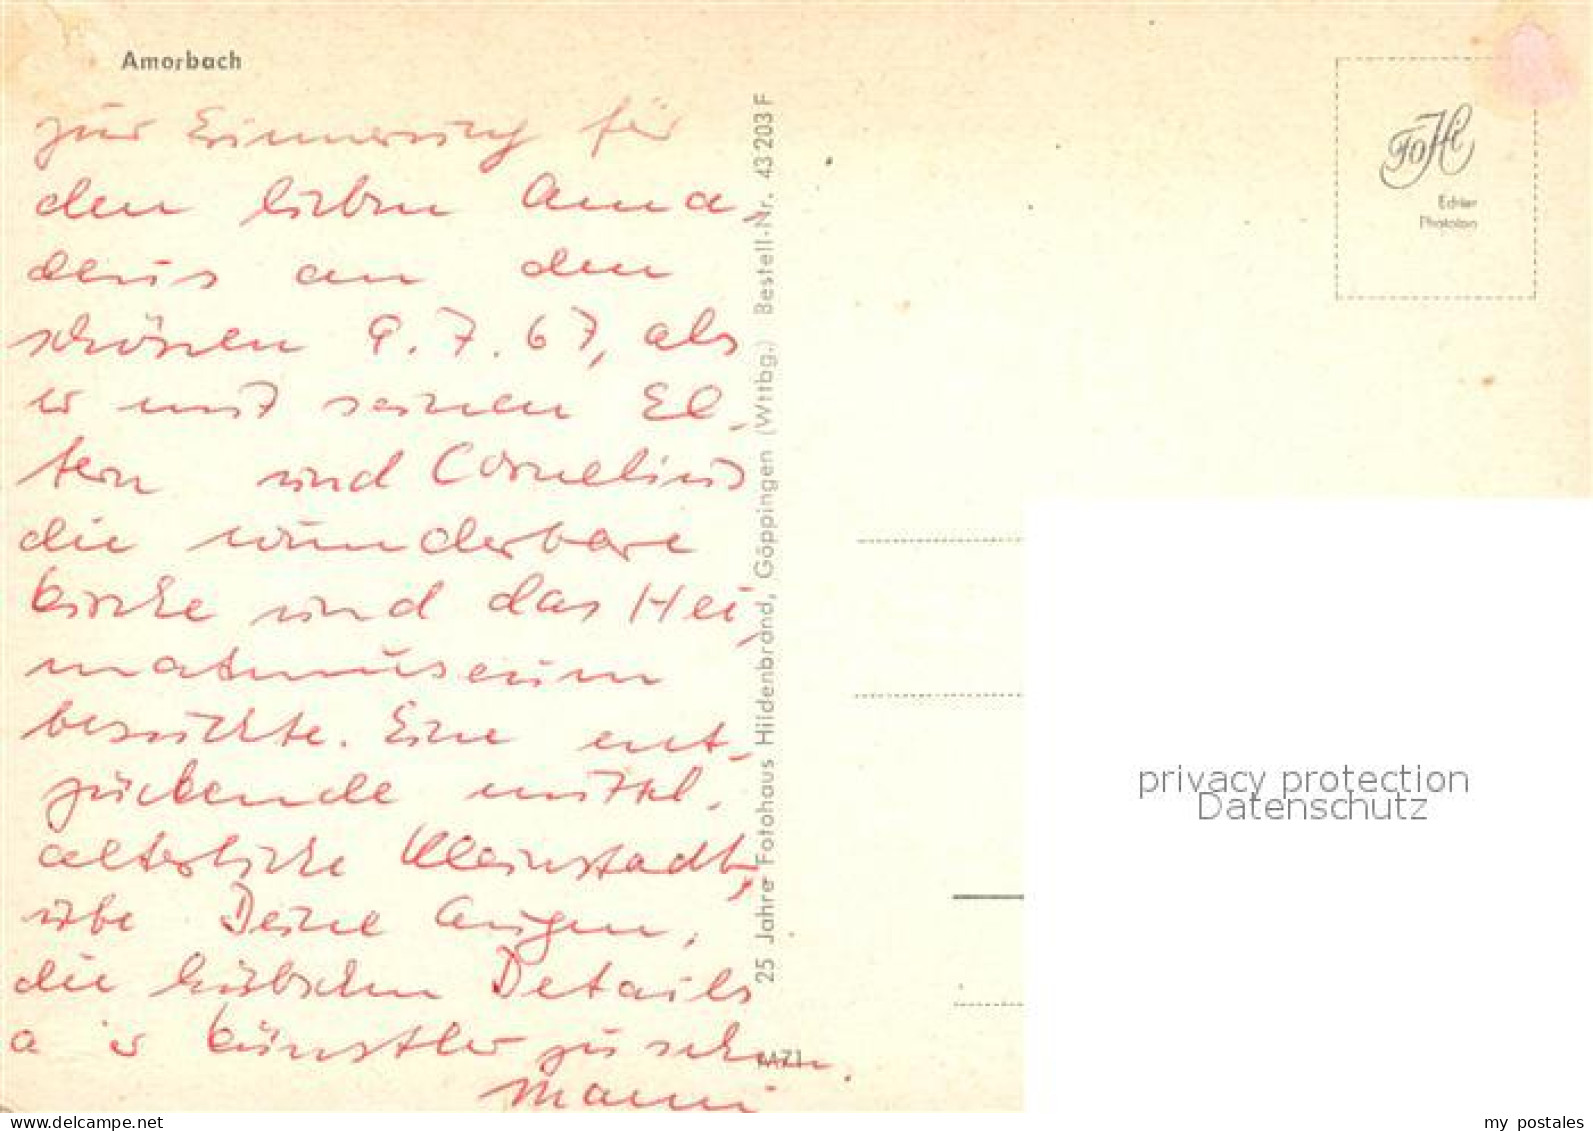 Amorbach
zur Erinnerung für
den lieben Ama-
deus an den
schönen 9.7.67, als
er mit seinen El-
tern und Cornelius
die wunderbare
Kirche und das Hei-
matmuseum
besuchte. Eine ent-
zückende mittel-
alterliche Kleinstadt,
übe Deine Augen,
die hübschen Details
a er Künstler zu sehen.
Mami
25 Jahre Fotohaus Hildenbrand, Göppingen (Wttbg.) Bestell-Nr. 43 203 F
M71
FoHi
Echter
Phototon
privacy protection
Datenschutz
my postales